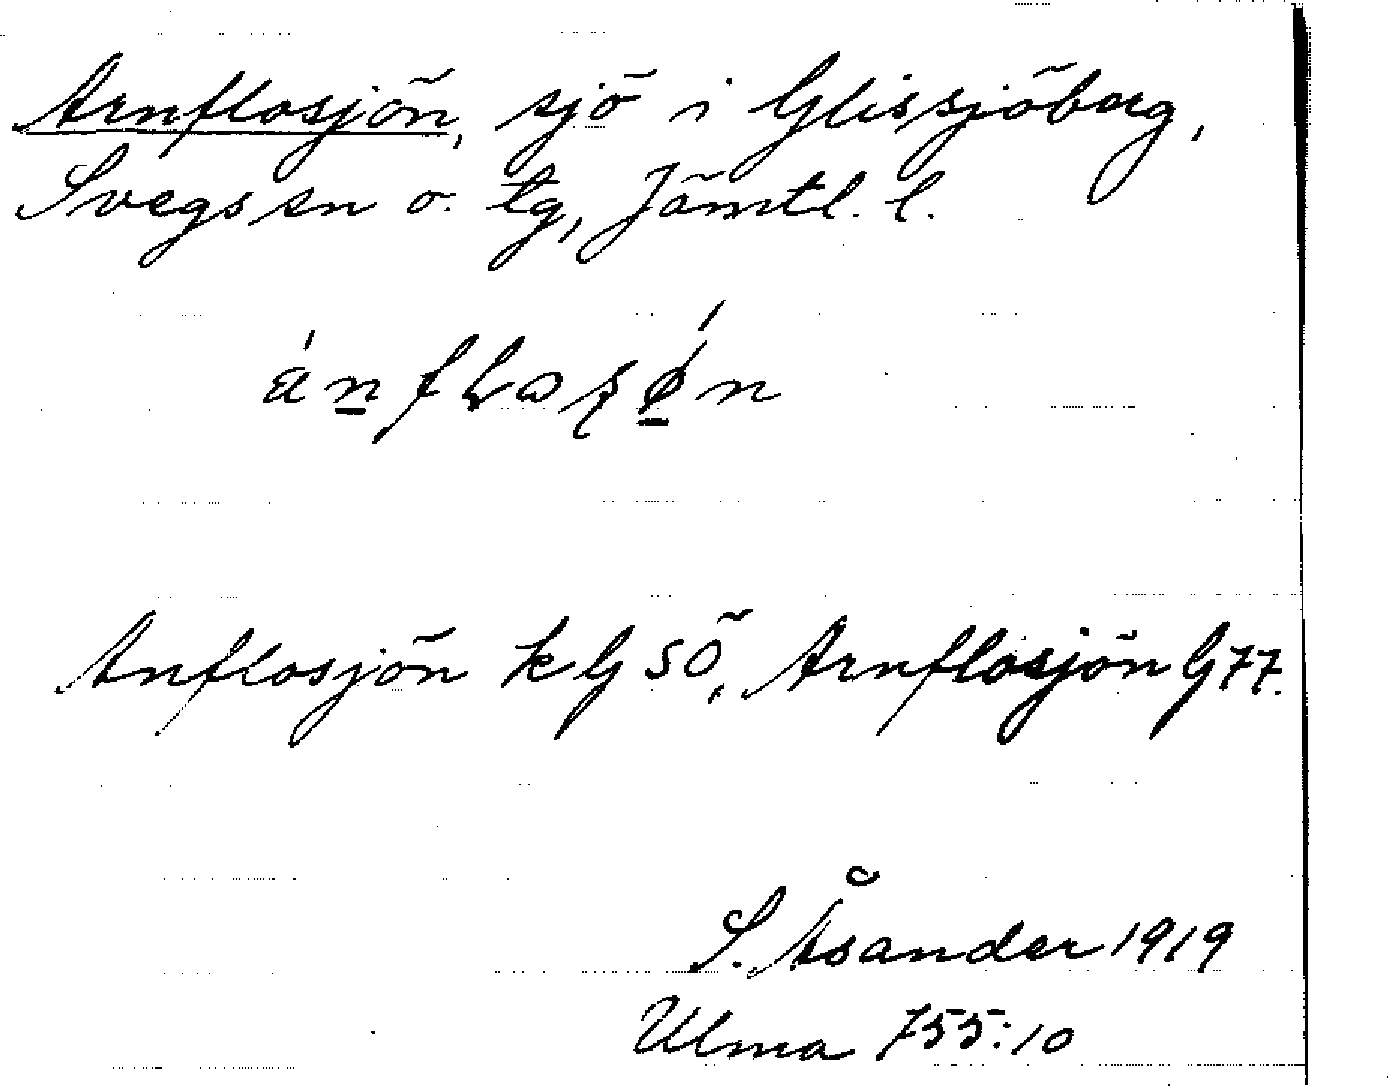 Arnflosjön, sjö i Glissjöberg,
Svegs sn o. tg, Jämtl. l.
Anflosjön kG SÖ, Arnflosjön G 77.
S. Åsander 1919
Ulma 755:10